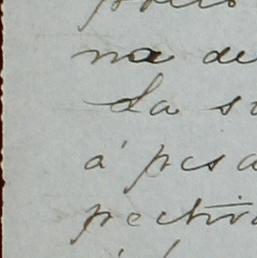 na de
La s
á pesa
pectiv